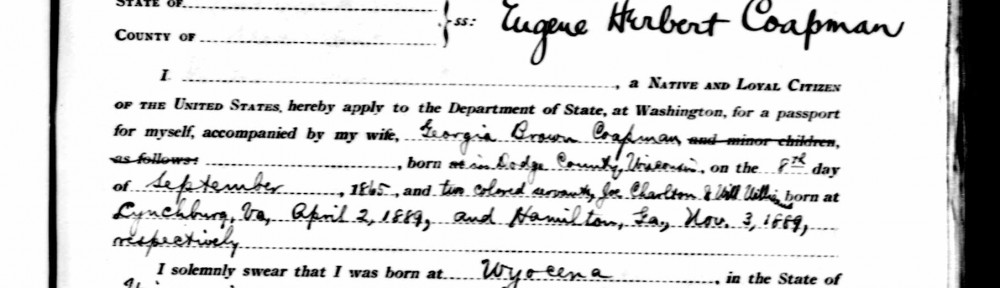 STATE OF
ss: Eugene Herbert Coapman
COUNTY OF
I, a NATIVE AND LOYAL CITIZEN
OF THE UNITED STATES, hereby apply to the Department of State, at Washington, for a passport
for myself, accompanied by my wife, Georgia Brown Coapman, and minor children,
as follows: , born at in Dodge County, Wisconsin, on the 8th day
of September, 1865, and two colored servants, Joe Charlton & Will Willis, born at
Lynchburg, Va, April 2, 1889, and Hamilton, Ga, Nov. 3, 1889,
respectively
I solemnly swear that I was born at Wyocena, in the State of